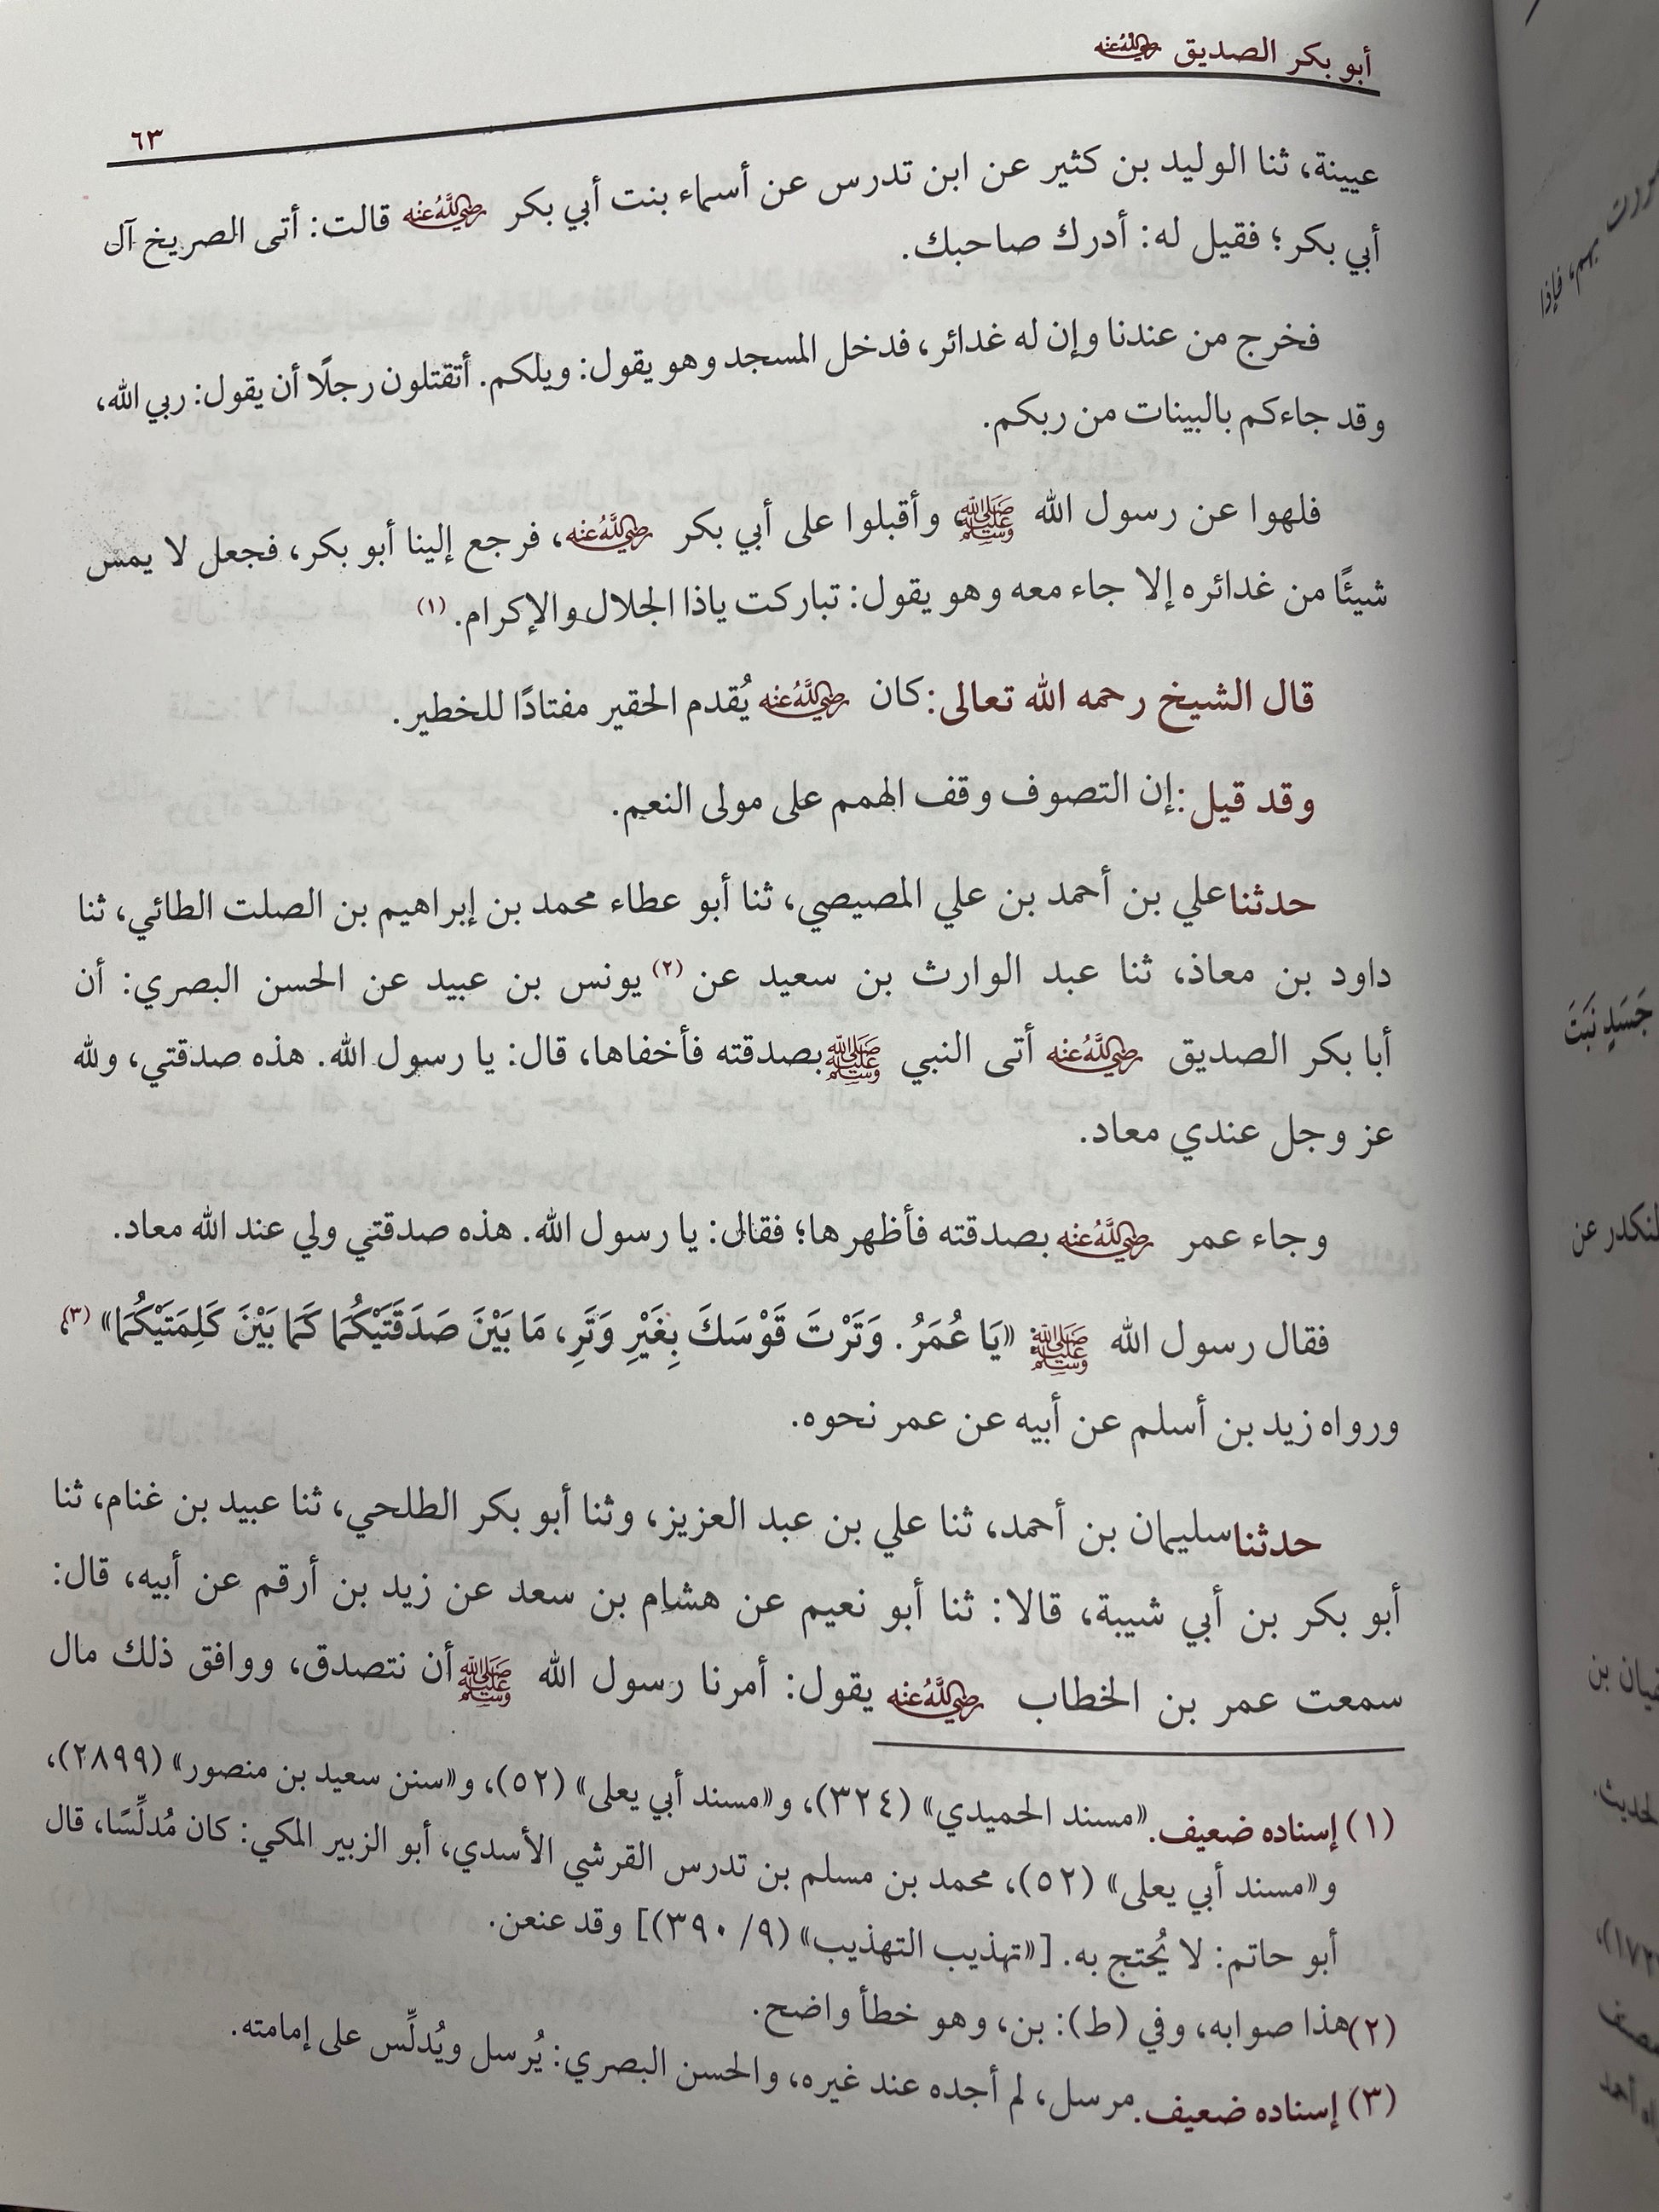 أبو بكر الصديق رضي الله عنه
٦٣
عيينة، ثنا الوليد بن كثير عن ابن تدرس عن أسماء بنت أبي بكر رضي الله عنه قالت: أتى الصريخ آل
أبي بكر؛ فقيل له: أدرك صاحبك.
فخرج من عندنا وإن له غدائر، فدخل المسجد وهو يقول: ويلكم. أتقتلون رجلًا أن يقول: ربي الله،
وقد جاءكم بالبينات من ربكم.
فلهوا عن رسول الله ﷺ وأقبلوا على أبي بكر رضي الله عنه، فرجع إلينا أبو بكر، فجعل لا يمس
شيئًا من غدائره إلا جاء معه وهو يقول: تباركت ياذا الجلال والإكرام. (١)
قال الشيخ رحمه الله تعالى: كان رضي الله عنه يُقدم الحقير مفتادًا للخطير.
وقد قيل: إن التصوف وقف الهمم على مولى النعم.
حدثنا علي بن أحمد بن علي المصيصي، ثنا أبو عطاء محمد بن إبراهيم بن الصلت الطائي، ثنا
داود بن معاذ، ثنا عبد الوارث بن سعيد عن (٢) يونس بن عبيد عن الحسن البصري: أن
أبا بكر الصديق رضي الله عنه أتى النبي ﷺ بصدقته فأخفاها، قال: يا رسول الله. هذه صدقتي، ولله
عز وجل عندي معاد.
وجاء عمر رضي الله عنه بصدقته فأظهرها؛ فقال: يا رسول الله. هذه صدقتي ولي عند الله معاد.
فقال رسول الله ﷺ «يَا عُمَرُ. وَتَرْتَ قَوْسَكَ بِغَيْرِ وَتَرِ، مَا بَيْنَ صَدَقَتَيْكُمَا كَمَا بَيْنَ كَلِمَتَيْكُمَا» (٣)،
ورواه زيد بن أسلم عن أبيه عن عمر نحوه.
حدثنا سليمان بن أحمد، ثنا علي بن عبد العزيز، وثنا أبو بكر الطلحي، ثنا عبيد بن غنام، ثنا
أبو بكر بن أبي شيبة، قالا: ثنا أبو نعيم عن هشام بن سعد عن زيد بن أرقم عن أبيه، قال:
سمعت عمر بن الخطاب رضي الله عنه يقول: أمرنا رسول الله ﷺ أن نتصدق، ووافق ذلك مال
(١) إسناده ضعيف. «مسند الحميدي» (٣٢٤)، و«مسند أبي يعلى» (٥٢)، و«سنن سعيد بن منصور» (٢٨٩٩)،
و«مسند أبي يعلى» (٥٢)، محمد بن مسلم بن تدرس القرشي الأسدي، أبو الزبير المكي: كان مُدلِّسًا، قال
أبو حاتم: لا يُحتج به. [«تهذيب التهذيب» (٩/ ٣٩٠)] وقد عنعن.
(٢) هذا صوابه، وفي (ط): بن، وهو خطأ واضح.
(٣) إسناده ضعيف. مرسل، لم أجده عند غيره، والحسن البصري: يُرسل ويُدلِّس على إمامته.
فإذا
جَسَدٍ نَبَتَ